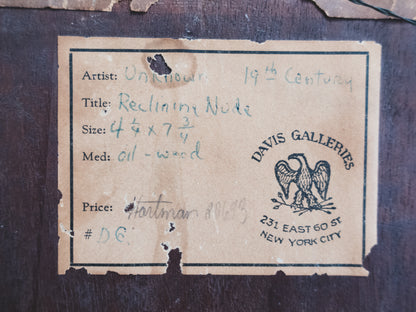 Artist: Unknown 19th Century
Title: Reclining Nude
Size: 4 1/4 x 7 3/4
Med: oil - wood
DAVIS GALLERIES
231 EAST 60 ST
NEW YORK CITY
Price: Hartman
#